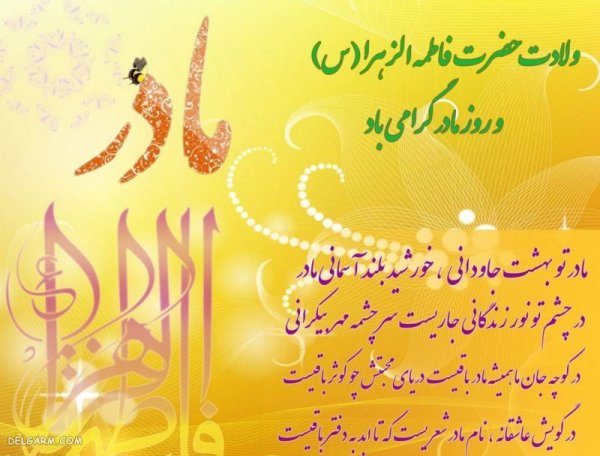 ولادت حضرت فاطمه الزهرا (س)
و روز مادر گرامی باد
مادر
مادر تو بهشت جاودانی ، خورشید بلند آسمانی مادر
در چشم تو نور زندگانی جاریست سرچشمه مهر بیکرانی
در کوچه جان ما همیشه مادر باقیست دریای محبتش چو کوثر باقیست
در گویش عاشقانه ، نام مادر شعریست که تا ابد به دفتر باقیست
فاطمه الزهرا
DELGARM.COM